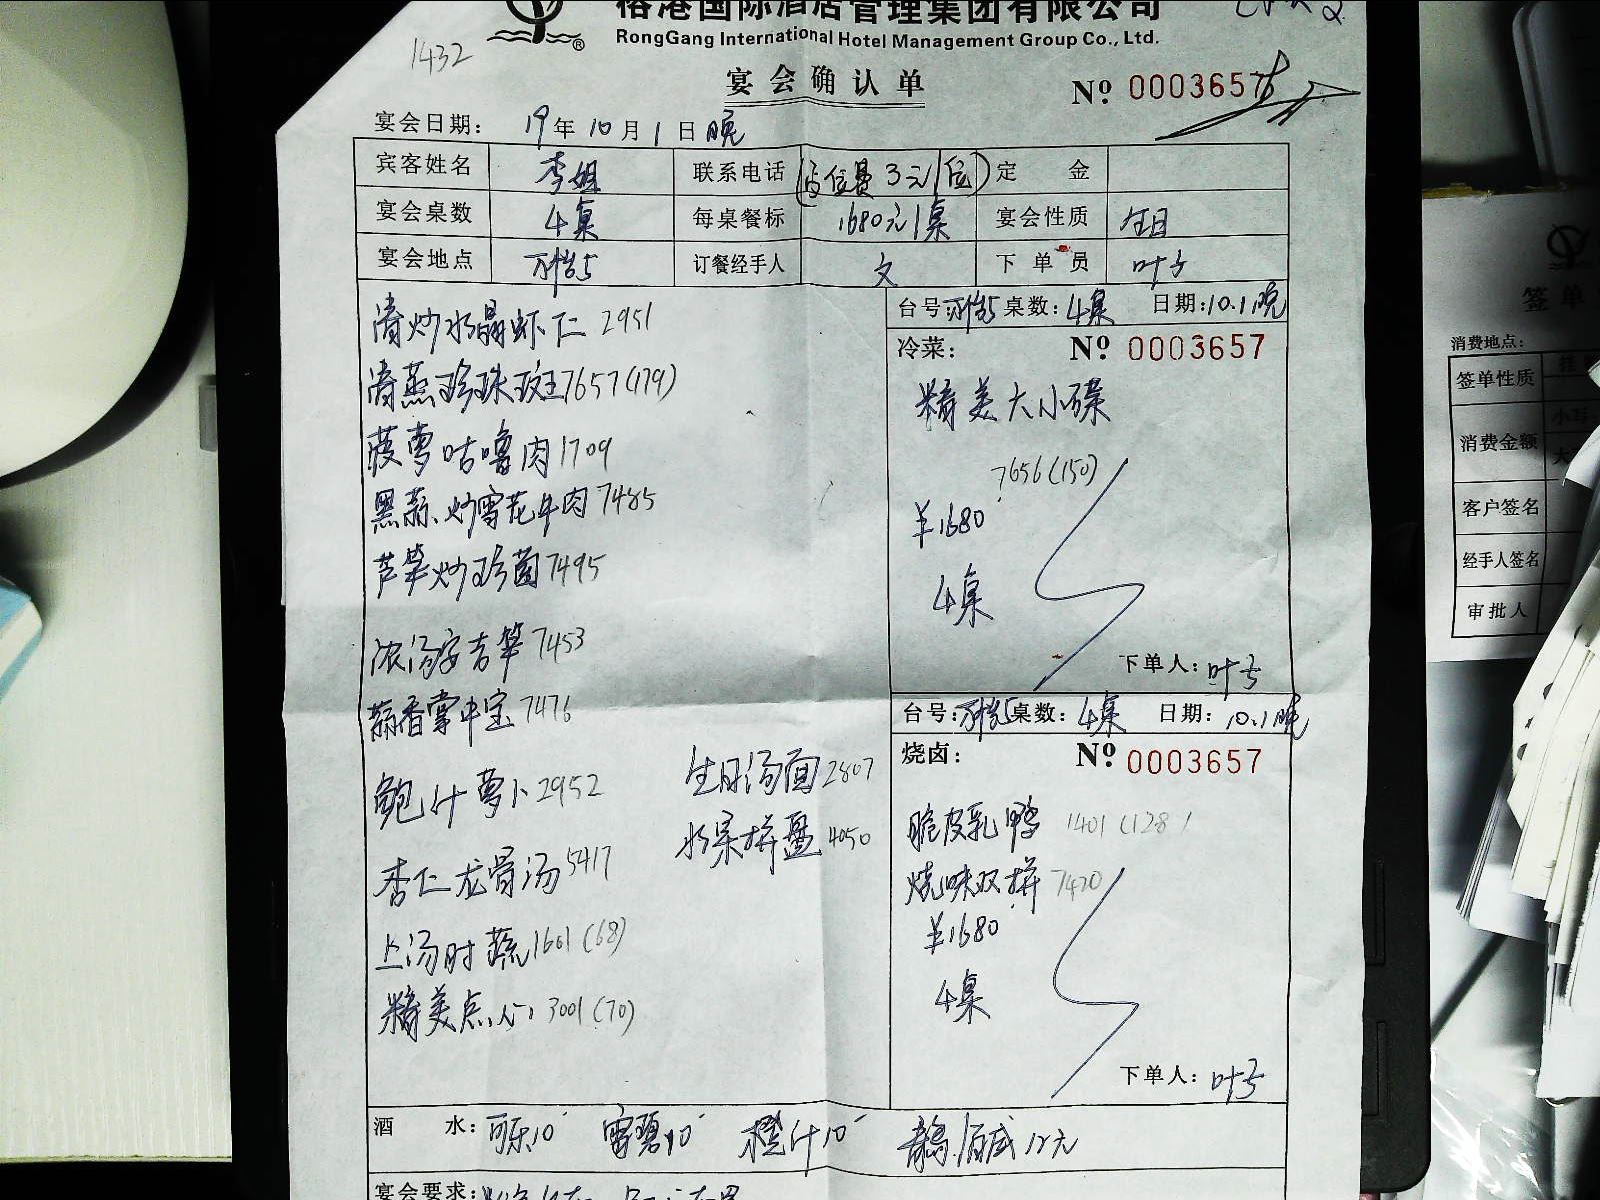 榕港国际酒店管理集团有限公司
RongGang International Hotel Management Group Co., Ltd.
1432
宴会确认单
No 0003657
宴会日期: 19年10月1日晚
宾客姓名 李姐 联系电话 (占位费3元/位) 定金
宴会桌数 4桌 每桌餐标 1680元/桌 宴会性质 生日
宴会地点 订餐经手人 文 下单员 叶子
清炒水晶虾仁 2951
清蒸珍珠斑 7657(179)
菠萝咕噜肉 1709
黑蒜炒雪花牛肉 7485
芦笋炒珍菌 7495
浓汤安吉笋 7453
蒜香掌中宝 7476
鲍汁萝卜 2952
杏仁龙骨汤 5417
上汤时蔬 1601(68)
精美点心 3001(70)
生日汤面 2807
水果拼盘 4050
台号: 桌数: 4桌 日期: 10.1晚
冷菜: No 0003657
精美大小碟
7656(150)
¥1680
4桌
下单人: 叶子
台号: 桌数: 4桌 日期: 10.1晚
烧卤: No 0003657
脆皮乳鸭 1401(128)
烧味双拼 7420
¥1680
4桌
下单人: 叶子
酒水: 可乐10 雪碧10 橙汁10 百威12元
宴会要求:
签单
消费地点:
签单性质
消费金额
客户签名
经手人签名
审批人